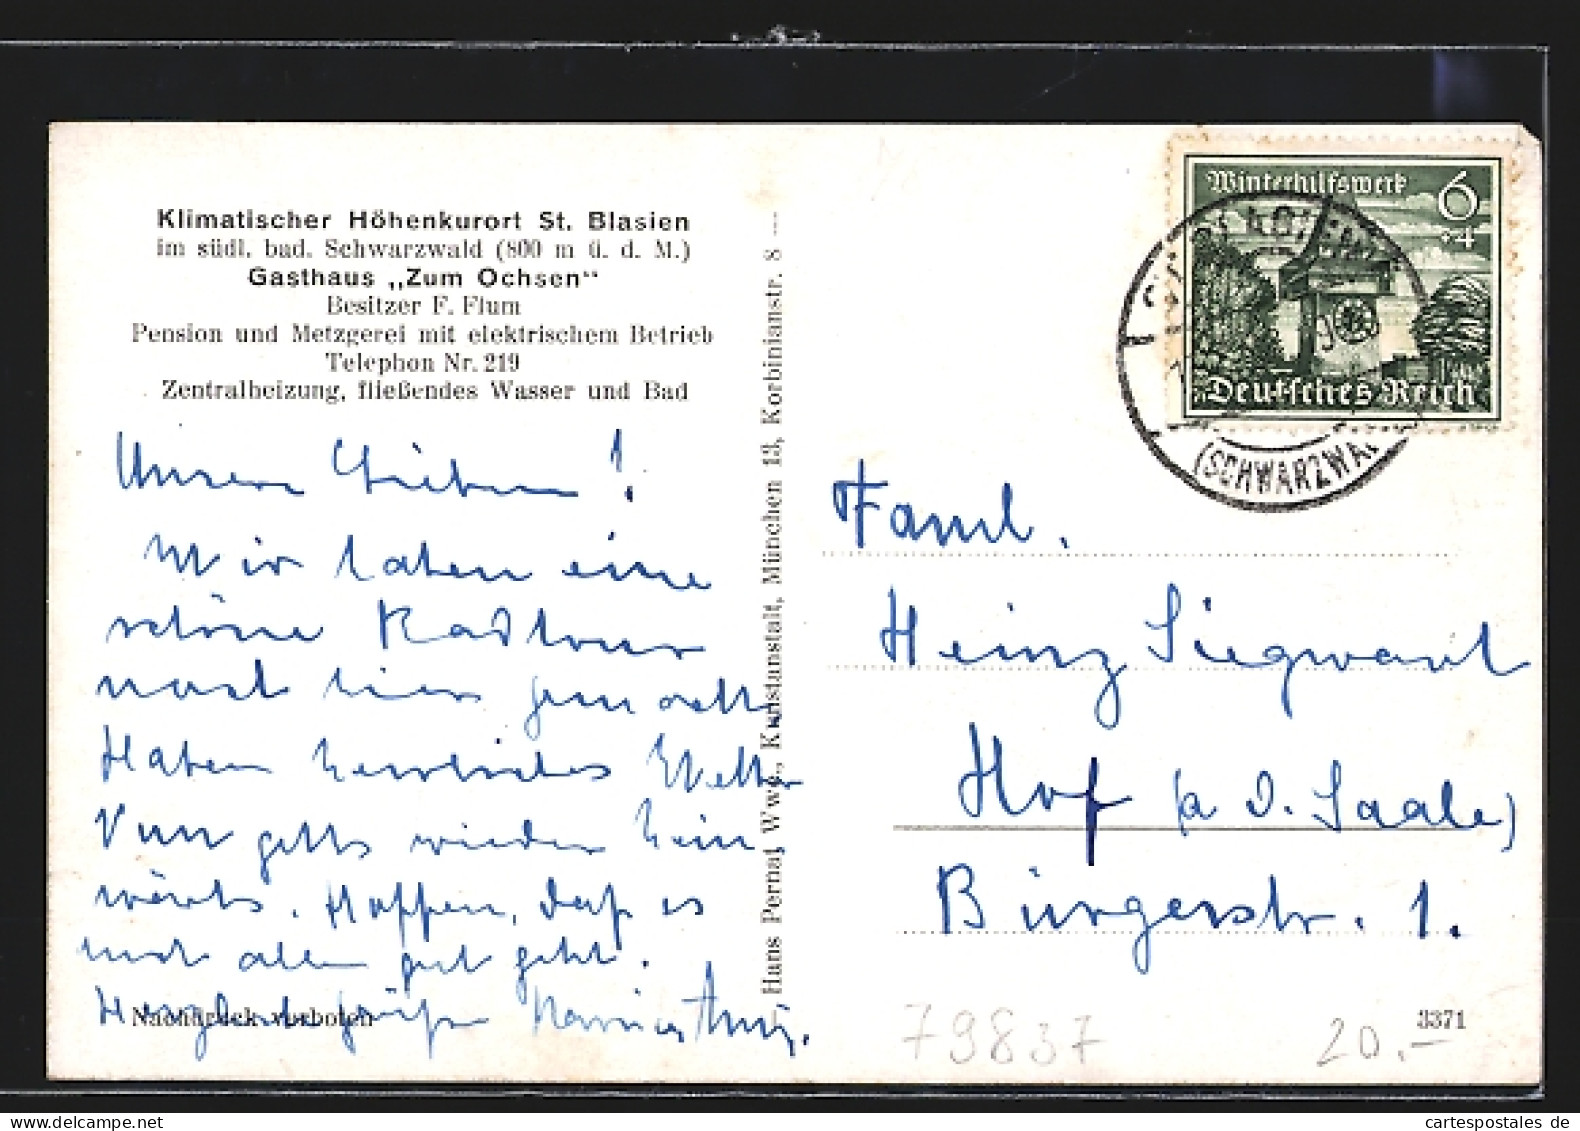 Klimatischer Höhenkurort St. Blasien
im südl. bad. Schwarzwald (800 m ü. d. M.)
Gasthaus „Zum Ochsen"
Besitzer F. Flum
Pension und Metzgerei mit elektrischem Betrieb
Telephon Nr. 219
Zentralheizung, fließendes Wasser und Bad
Unsere Lieben!
Wir haben eine
schöne Radtour
nach hier gemacht,
Haben herrliches Wetter
Nun gehts wieder heim
wärts. Hoffen, daß es
euch allen gut geht.
Herzlichst grüßen
Nachdruck verboten
Hans Pernat Wwe., Kunstanstalt, München 13, Korbinianstr. 8
Winterhilfswerk
6
+4
Deutsches Reich
(SCHWARZWA
Faml.
Heinz Siegwart
Hof (a d. Saale)
Bürgerstr. 1.
79837
20.—
3371
cartespostales de